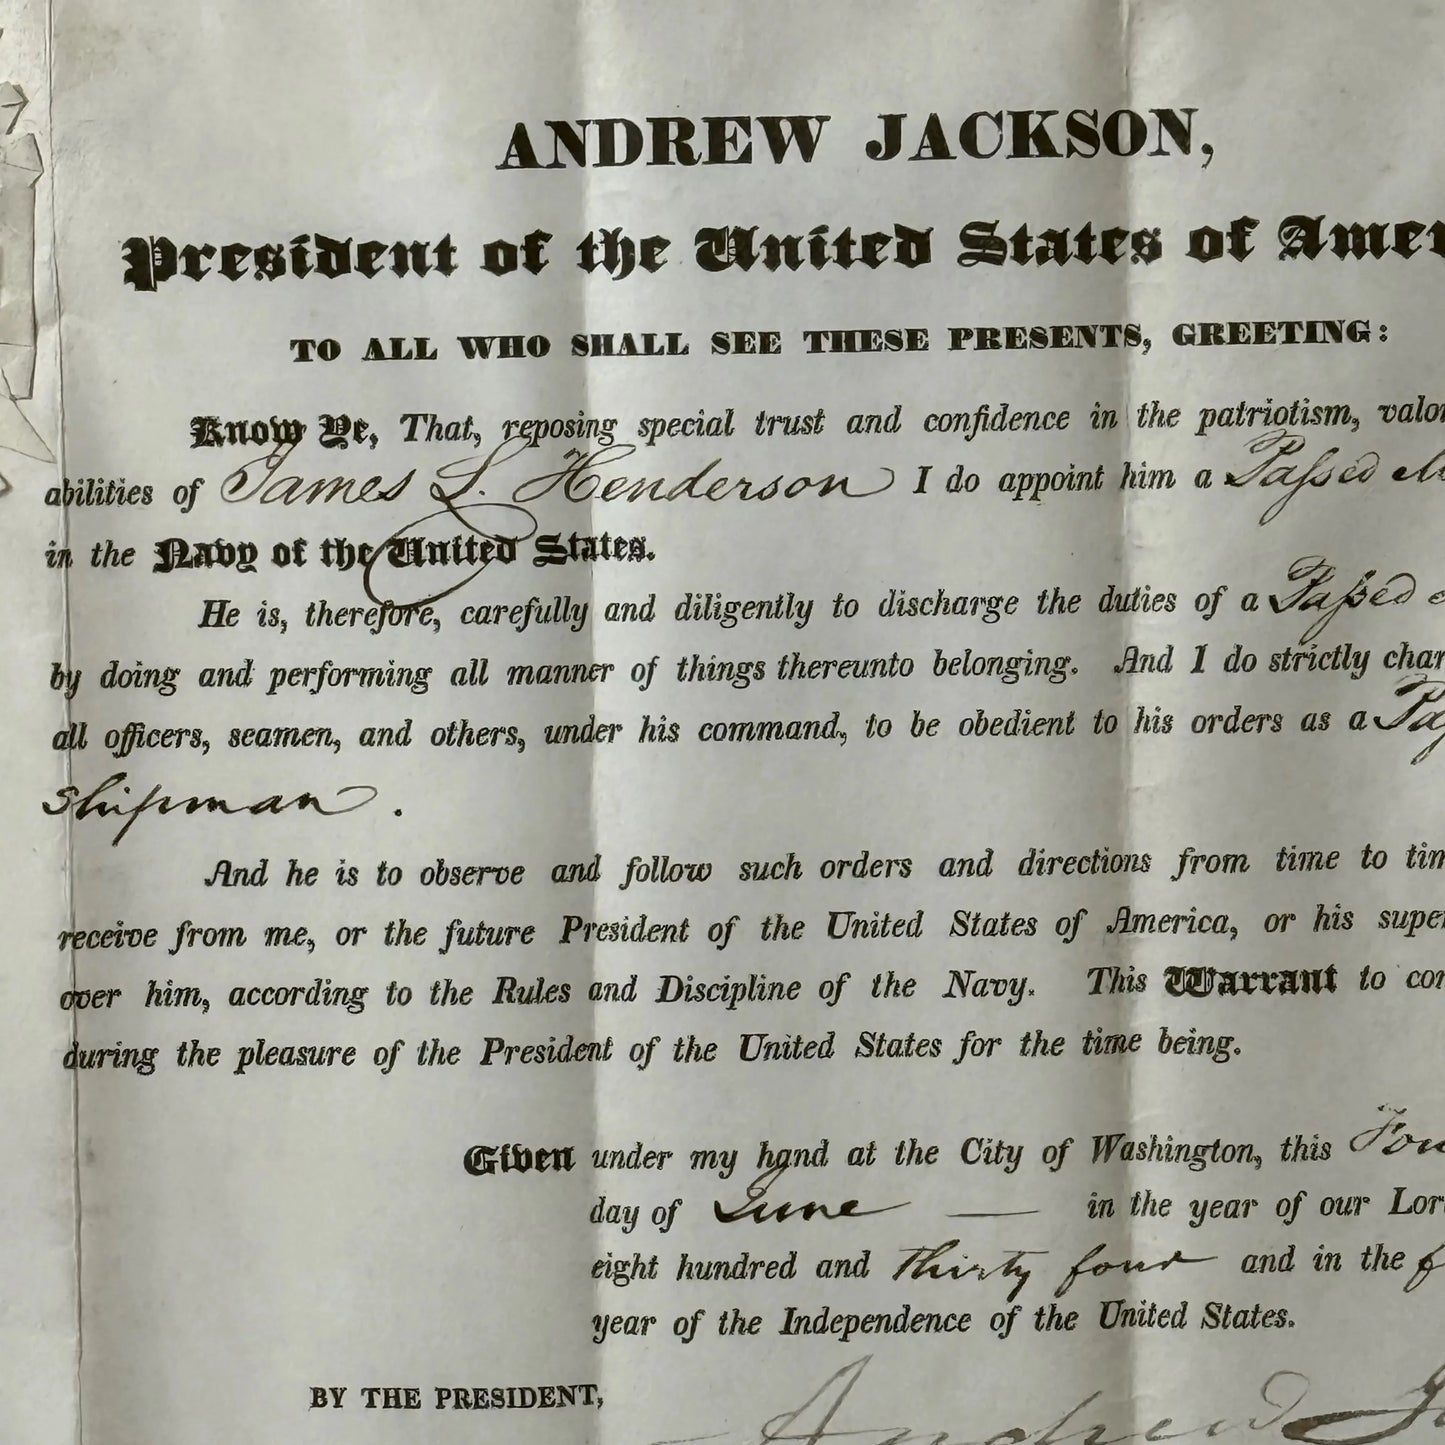 ANDREW JACKSON,
President of the United States of Amer
TO ALL WHO SHALL SEE THESE PRESENTS, GREETING:
Know Ye, That, reposing special trust and confidence in the patriotism, valor
abilities of James L. Henderson I do appoint him a Passed M
in the Navy of the United States.
He is, therefore, carefully and diligently to discharge the duties of a Passed
by doing and performing all manner of things thereunto belonging. And I do strictly char
all officers, seamen, and others, under his command, to be obedient to his orders as a Pas
shipman .
And he is to observe and follow such orders and directions from time to tim
receive from me, or the future President of the United States of America, or his super
over him, according to the Rules and Discipline of the Navy. This Warrant to con
during the pleasure of the President of the United States for the time being.
Given under my hand at the City of Washington, this Fou
day of June — in the year of our Lor
eight hundred and thirty four and in the f
year of the Independence of the United States.
BY THE PRESIDENT,
Andrew Ja